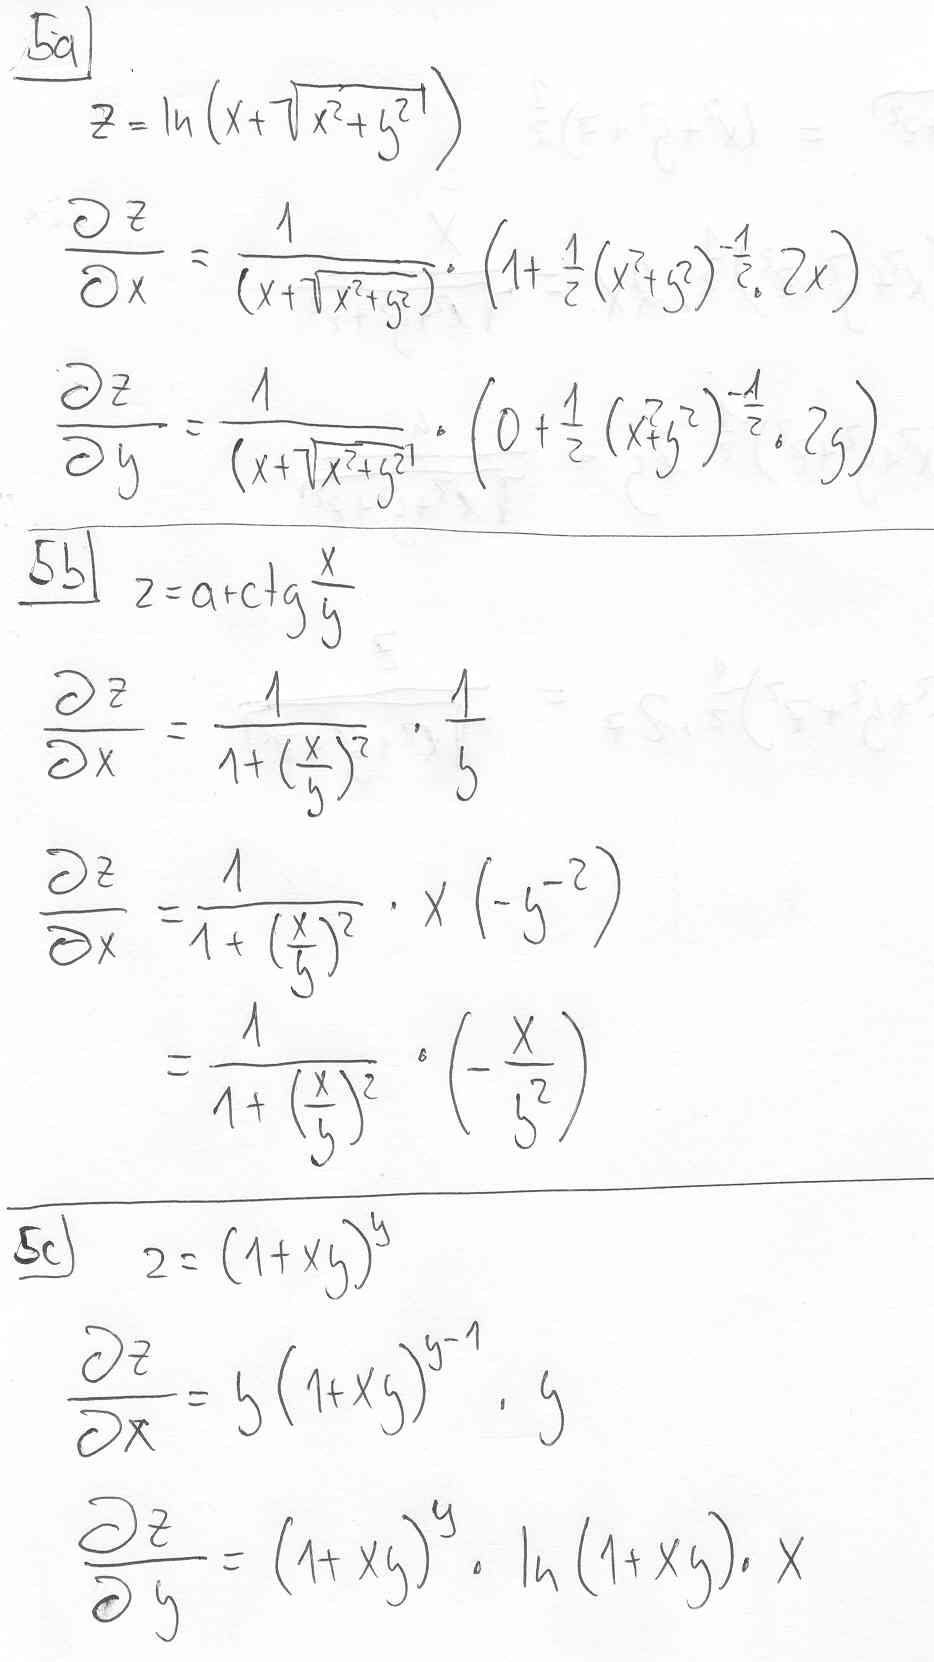 5a
z = ln(x+√(x²+y²))
∂z/∂x = 1/(x+√(x²+y²)) · (1+ 1/2 (x²+y²)^(-1/2) · 2x)
∂z/∂y = 1/(x+√(x²+y²) · (0 + 1/2 (x²+y²)^(-1/2) · 2y)
5b
z = arctg x/y
∂z/∂x = 1/(1+(x/y)²) · 1/y
∂z/∂x = 1/(1+(x/y)²) · x(-y⁻²)
= 1/(1+(x/y)²) · (-x/y²)
5c
z = (1+xy)^y
∂z/∂x = y(1+xy)^(y-1) · y
∂z/∂y = (1+xy)^y · ln(1+xy) · x